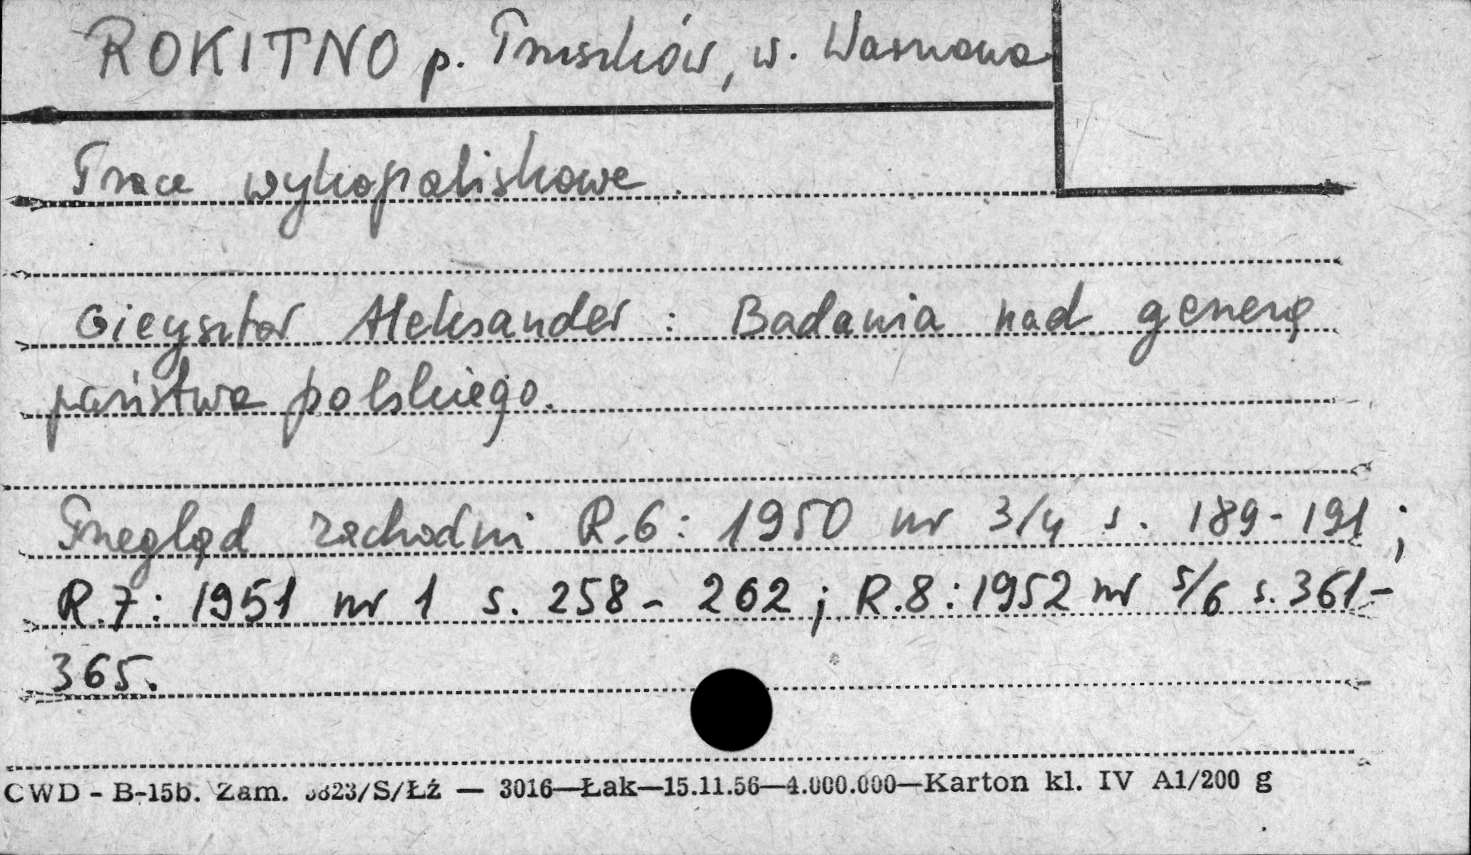 ROKITNO p. Pruszków, w. Warszawa
Prace wykopaliskowe.
Gieysztor Aleksander : Badania nad genezą
państwa polskiego.
Przegląd zachodni R.6: 1950 nr 3/4 s. 189-191;
R.7: 1951 nr 1 s. 258-262; R.8: 1952 nr 5/6 s. 361-
365.
CWD - B-15b. Zam. 5823/S/Łż — 3016—Łak—15.11.56—4.000.000—Karton kl. IV A1/200 g